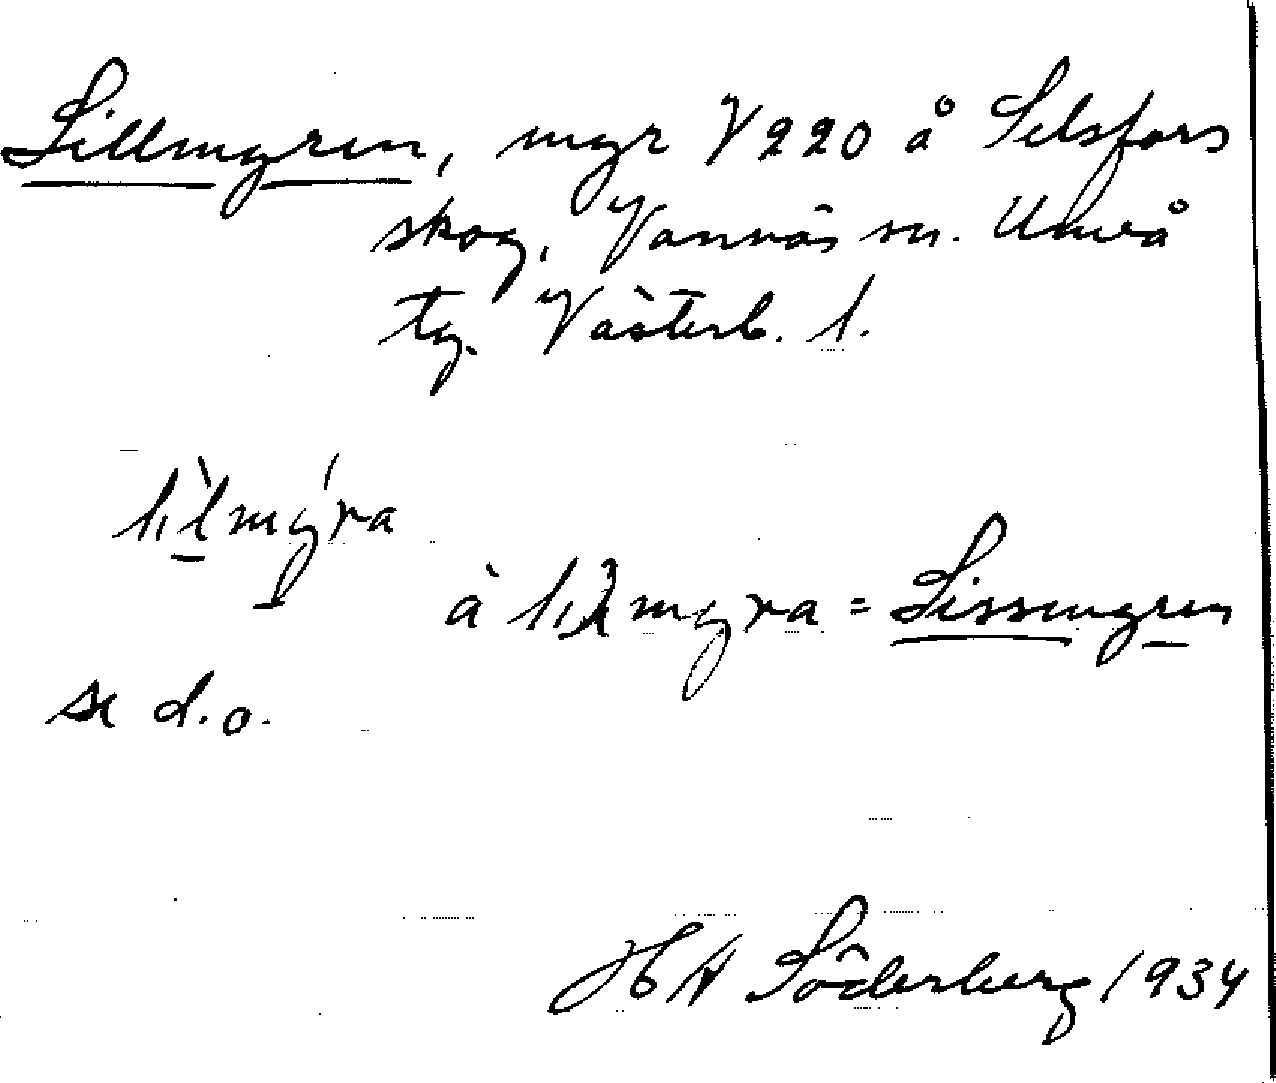 Lillmyren, myr V220 å Selsfors
skog, Vännäs sn. Umeå
tg. Västerb. l.
lìlmýra
à lilmyra = Lissmyren
se d.o.
HA Söderberg 1934